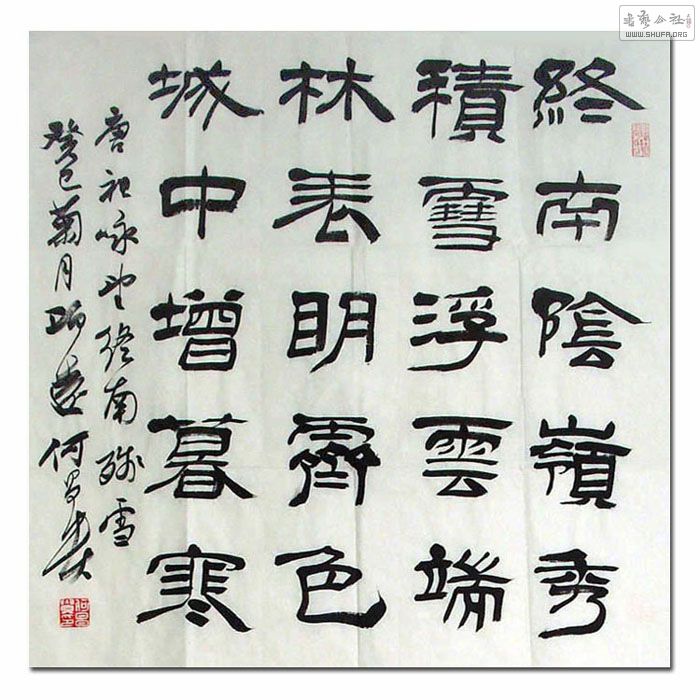 終南陰嶺秀
積雪浮雲端
林表明霽色
城中增暮寒
唐祖咏望終南殘雪
癸巳菊月 何昌
書藝公社
WWW.SHUFA.ORG